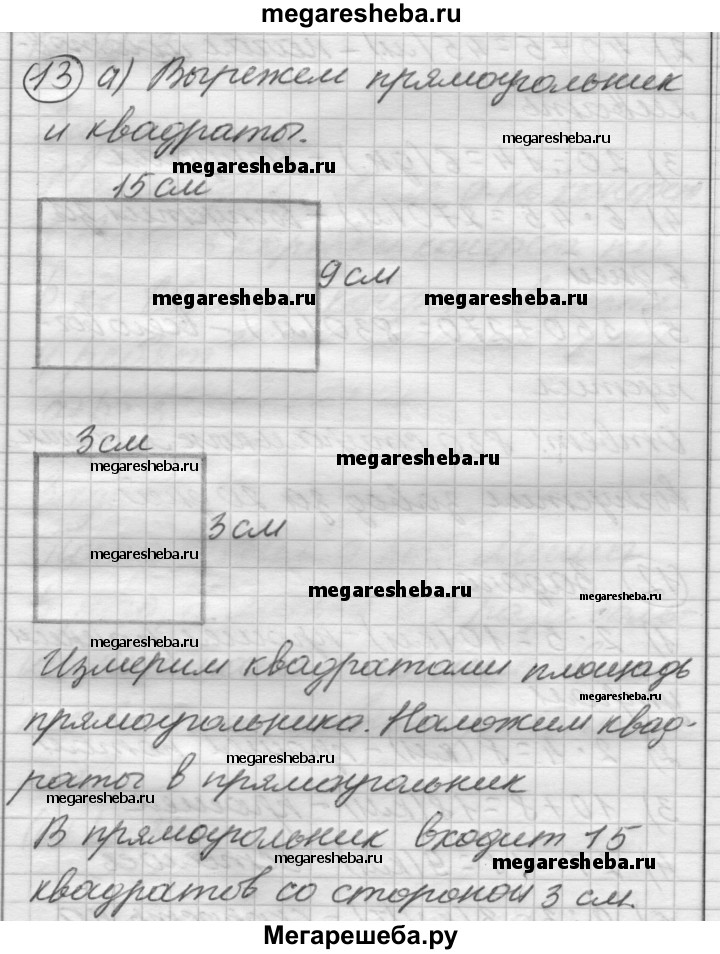 megaresheba.ru
13 а) Вырежем прямоугольник
и квадраты.
megaresheba.ru
megaresheba.ru
15 см
9 см
megaresheba.ru
megaresheba.ru
3 см
megaresheba.ru
megaresheba.ru
3 см
megaresheba.ru
megaresheba.ru
megaresheba.ru
megaresheba.ru
Измерим квадратами площадь
megaresheba.ru
прямоугольника. Наложим квад-
megaresheba.ru
раты в прямоугольник
megaresheba.ru
megaresheba.ru
В прямоугольник входит 15
megaresheba.ru
megaresheba.ru
квадратов со стороной 3 см.
Мегарешеба.ру